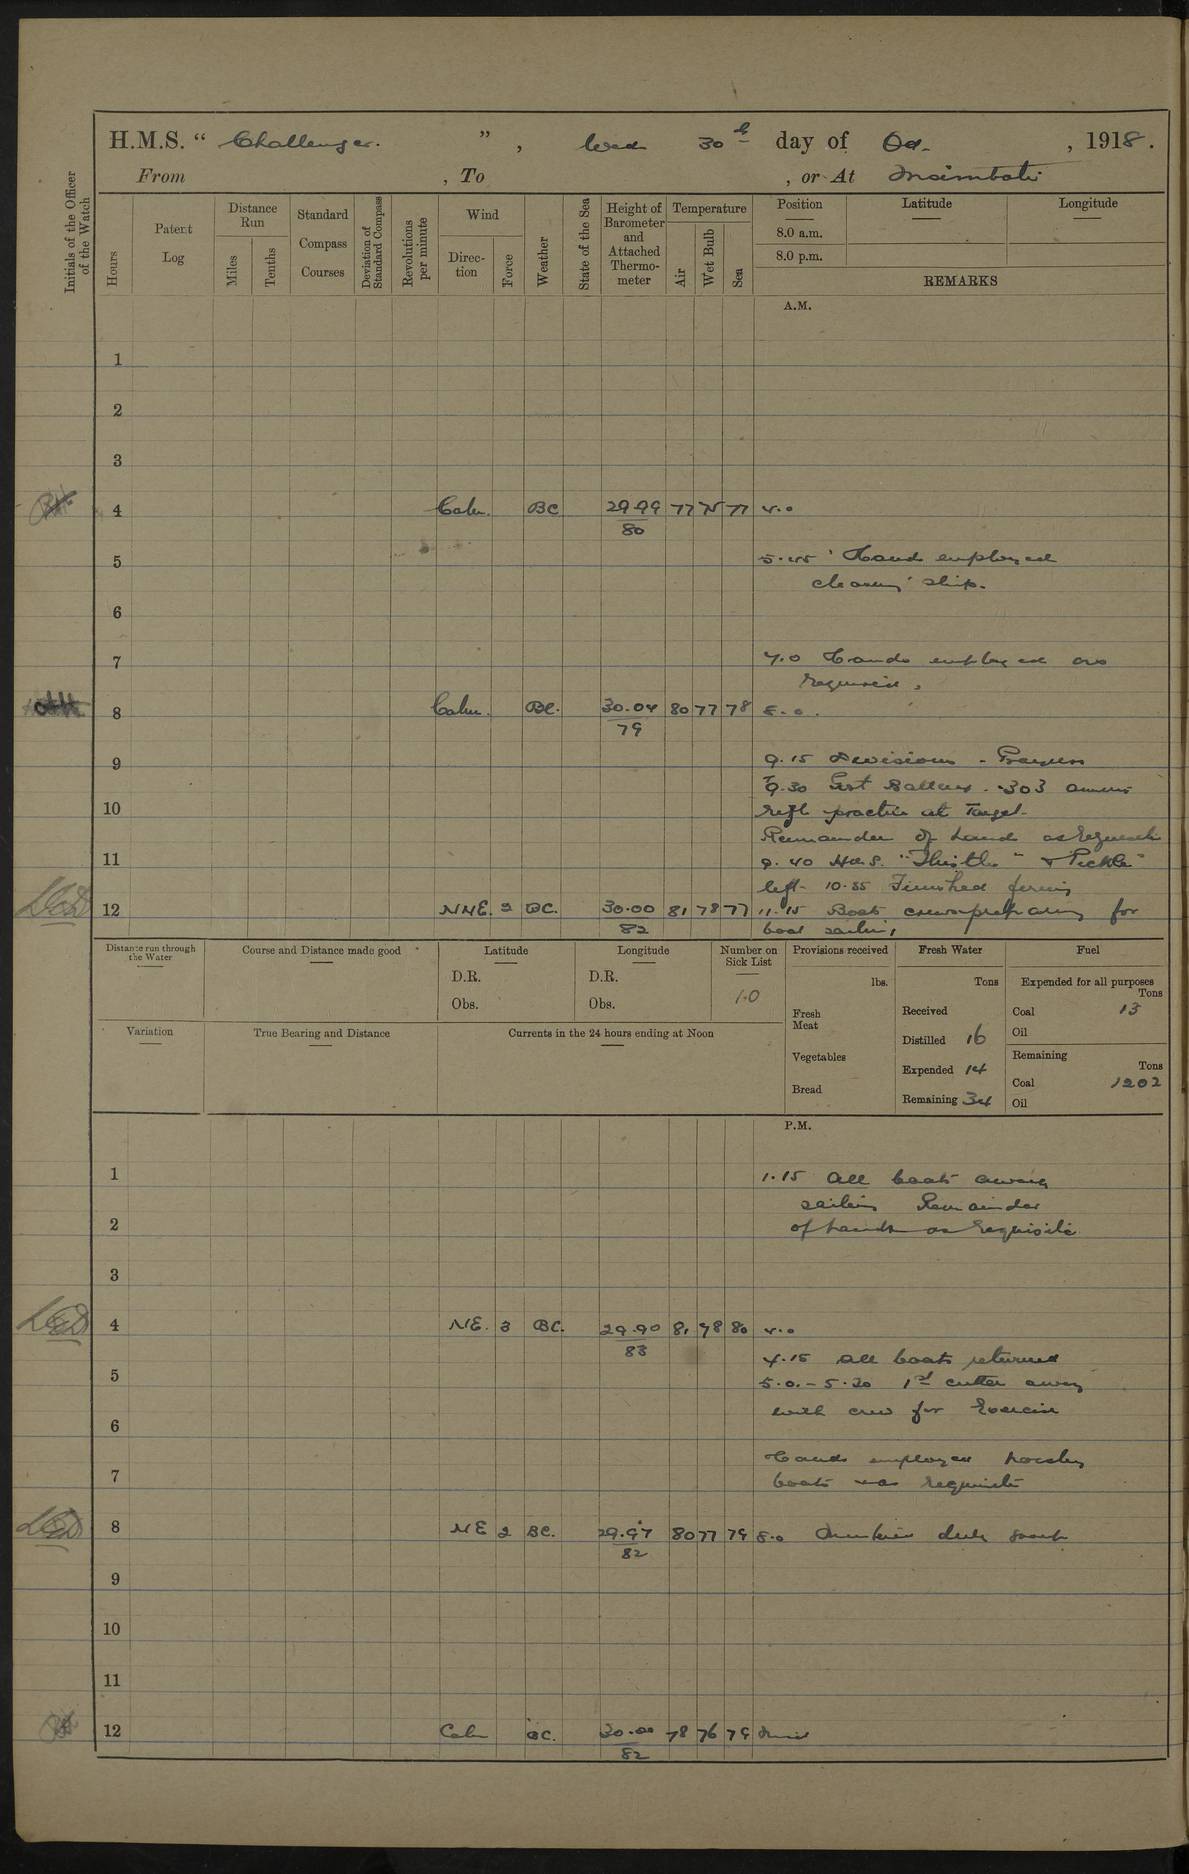 H.M.S. " Challenger. ", Wed 30th day of Oct. , 1918.
From , To , or At Msimbati
Initials of the Officer of the Watch
Hours
Patent Log
Distance Run
Miles
Tenths
Standard Compass Courses
Deviation of Standard Compass
Revolutions per minute
Wind
Direction
Force
Weather
State of the Sea
Height of Barometer and Attached Thermometer
Temperature
Air
Wet Bulb
Sea
Position Latitude Longitude
8.0 a.m.
8.0 p.m.
REMARKS
A.M.
1
2
3
4 Calm. BC 29.99 77 75 77 4.0
80
5 5.45 Hands employed
cleaning ship.
6
7 7.0 Hands employed as
requisite.
8 Calm. BC. 30.04 80 77 78 8.0.
79
9 9.15 Divisions - Prayers
9.30 .303
10 rifle practice at Target.
Remainder of hands as requisite
11 9.40 H.M.S. "Thistle" & "Pickle"
left 10.55 Finished firing
12 NNE. 2 BC. 30.00 81 78 77 11.15 Boats crews preparing for
82 boat sailing
Distance run through the Water
Course and Distance made good
Latitude
D.R.
Obs.
Longitude
D.R.
Obs.
Number on Sick List
10
Provisions received
lbs.
Fresh Meat
Vegetables
Bread
Fresh Water
Tons
Received
Distilled 16
Expended 14
Remaining 34
Fuel
Expended for all purposes
Tons
Coal 13
Oil
Remaining
Tons
Coal 1202
Oil
Variation
True Bearing and Distance
Currents in the 24 hours ending at Noon
P.M.
1 1.15 All boats away
sailing Remainder
2 of hands as requisite
3
4 NE. 3 BC. 29.90 81 78 80 4.0
83
4.15 All boats returned
5 5.0 - 5.30 1st cutter away
with crew for Exercise
6
Hands employed hoisting
7 boats & as requisite
8 NE 2 BC. 29.97 80 77 79 8.0
82
9
10
11
12 Calm BC. 30.00 78 76 79 Mid
82